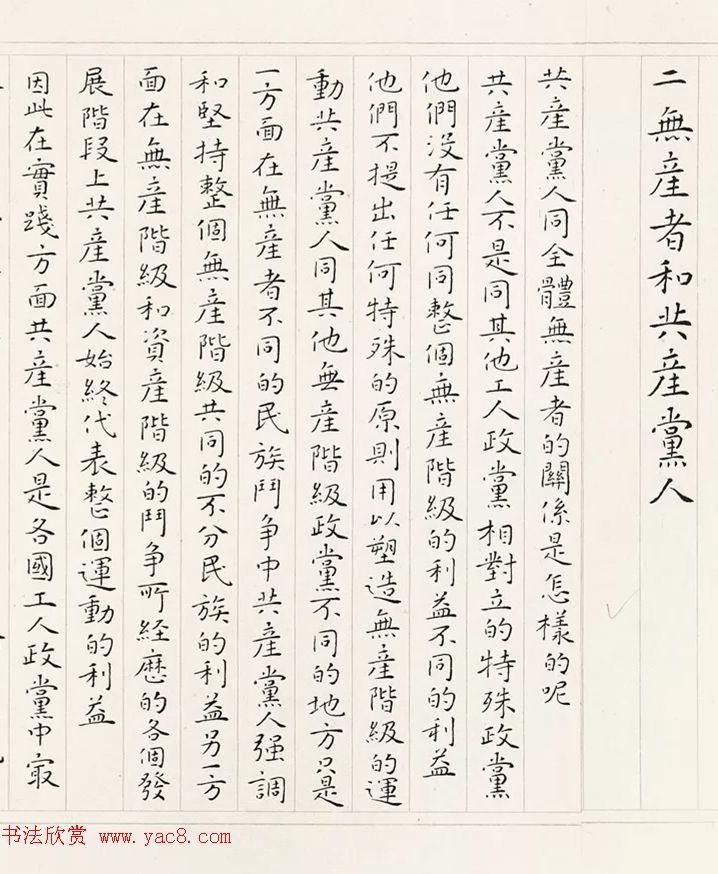 二無産者和共産黨人
共産黨人同全體無産者的關係是怎樣的呢
共産黨人不是同其他工人政黨相對立的特殊政黨
他們没有任何同整個無産階級的利益不同的利益
他們不提出任何特殊的原則用以塑造無産階級的運
動共産黨人同其他無産階級政黨不同的地方只是
一方面在無産者不同的民族鬥争中共産黨人强調
和堅持整個無産階級共同的不分民族的利益另一方
面在無産階級和資産階級的鬥争所経歷的各個發
展階段上共産黨人始終代表整個運動的利益
因此在實踐方面共産黨人是各國工人政黨中冣
书法欣赏 www.yac8.com